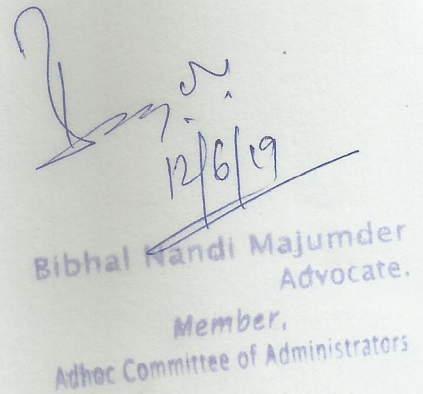 12/6/19
Bibhal Nandi Majumder
Advocate.
Member,
Adhoc Committee of Administrators